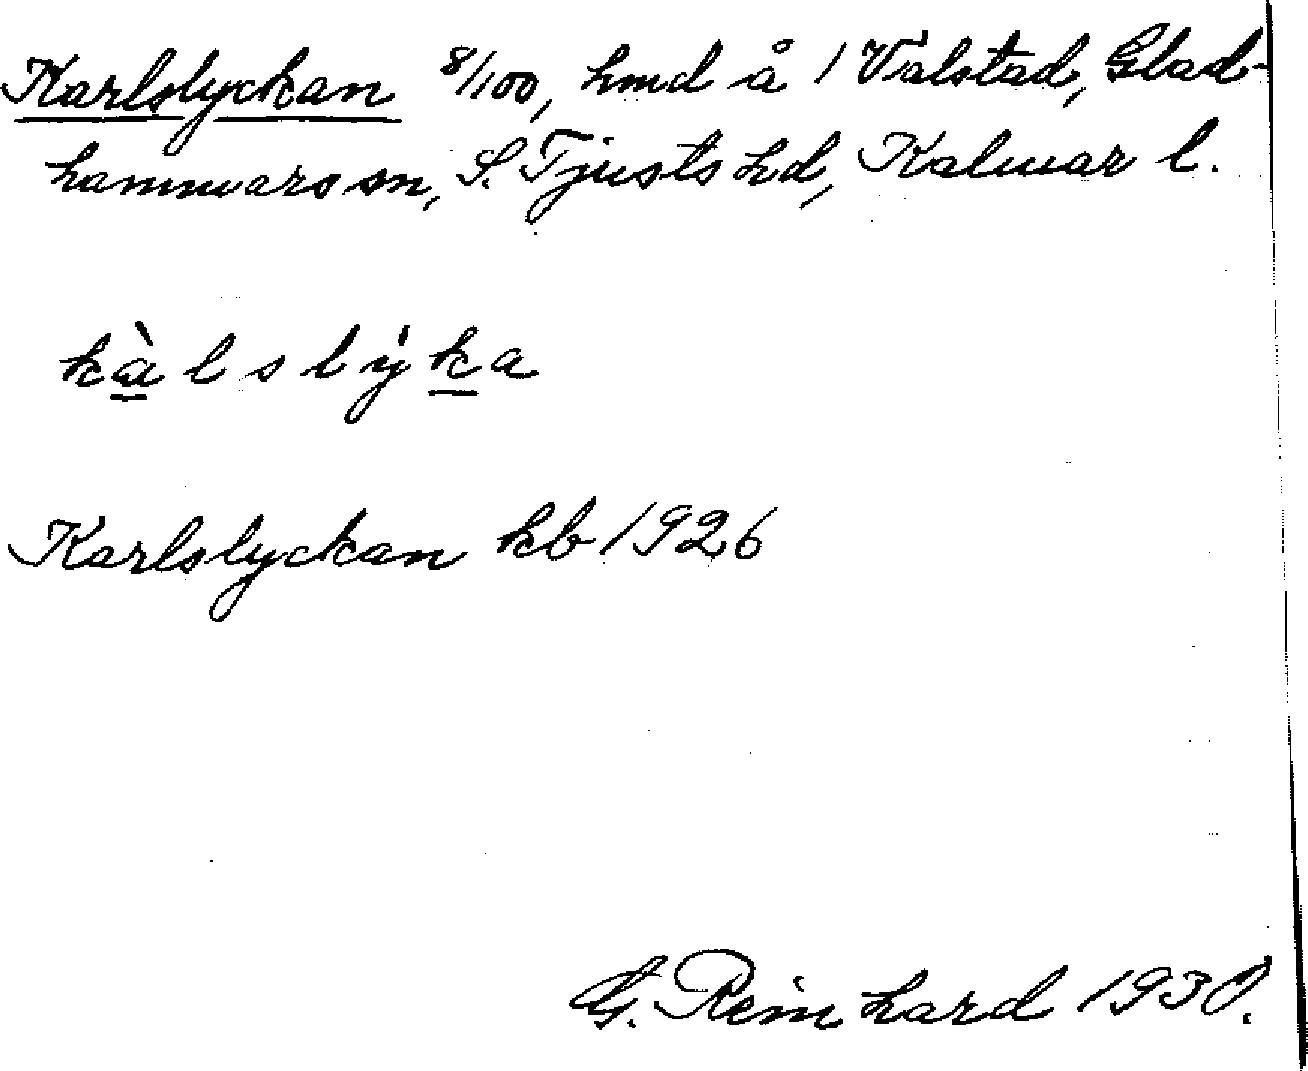 Karlslyckan 8/100, hmd å 1 Valstad, Glad-
hammars sn, S. Tjusts hd, Kalmar l.
kàlslýka
Karlslyckan kb 1926
G. Reinhard 1930.